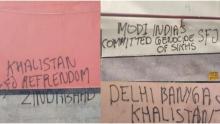 KHALISTAN
REFRENDOM
ZINDABAAD
MODI INDIA'S
COMMITTED GENOCIDE SFJ
OF SIKHS
DELHI BANYGA
KHALISTAN